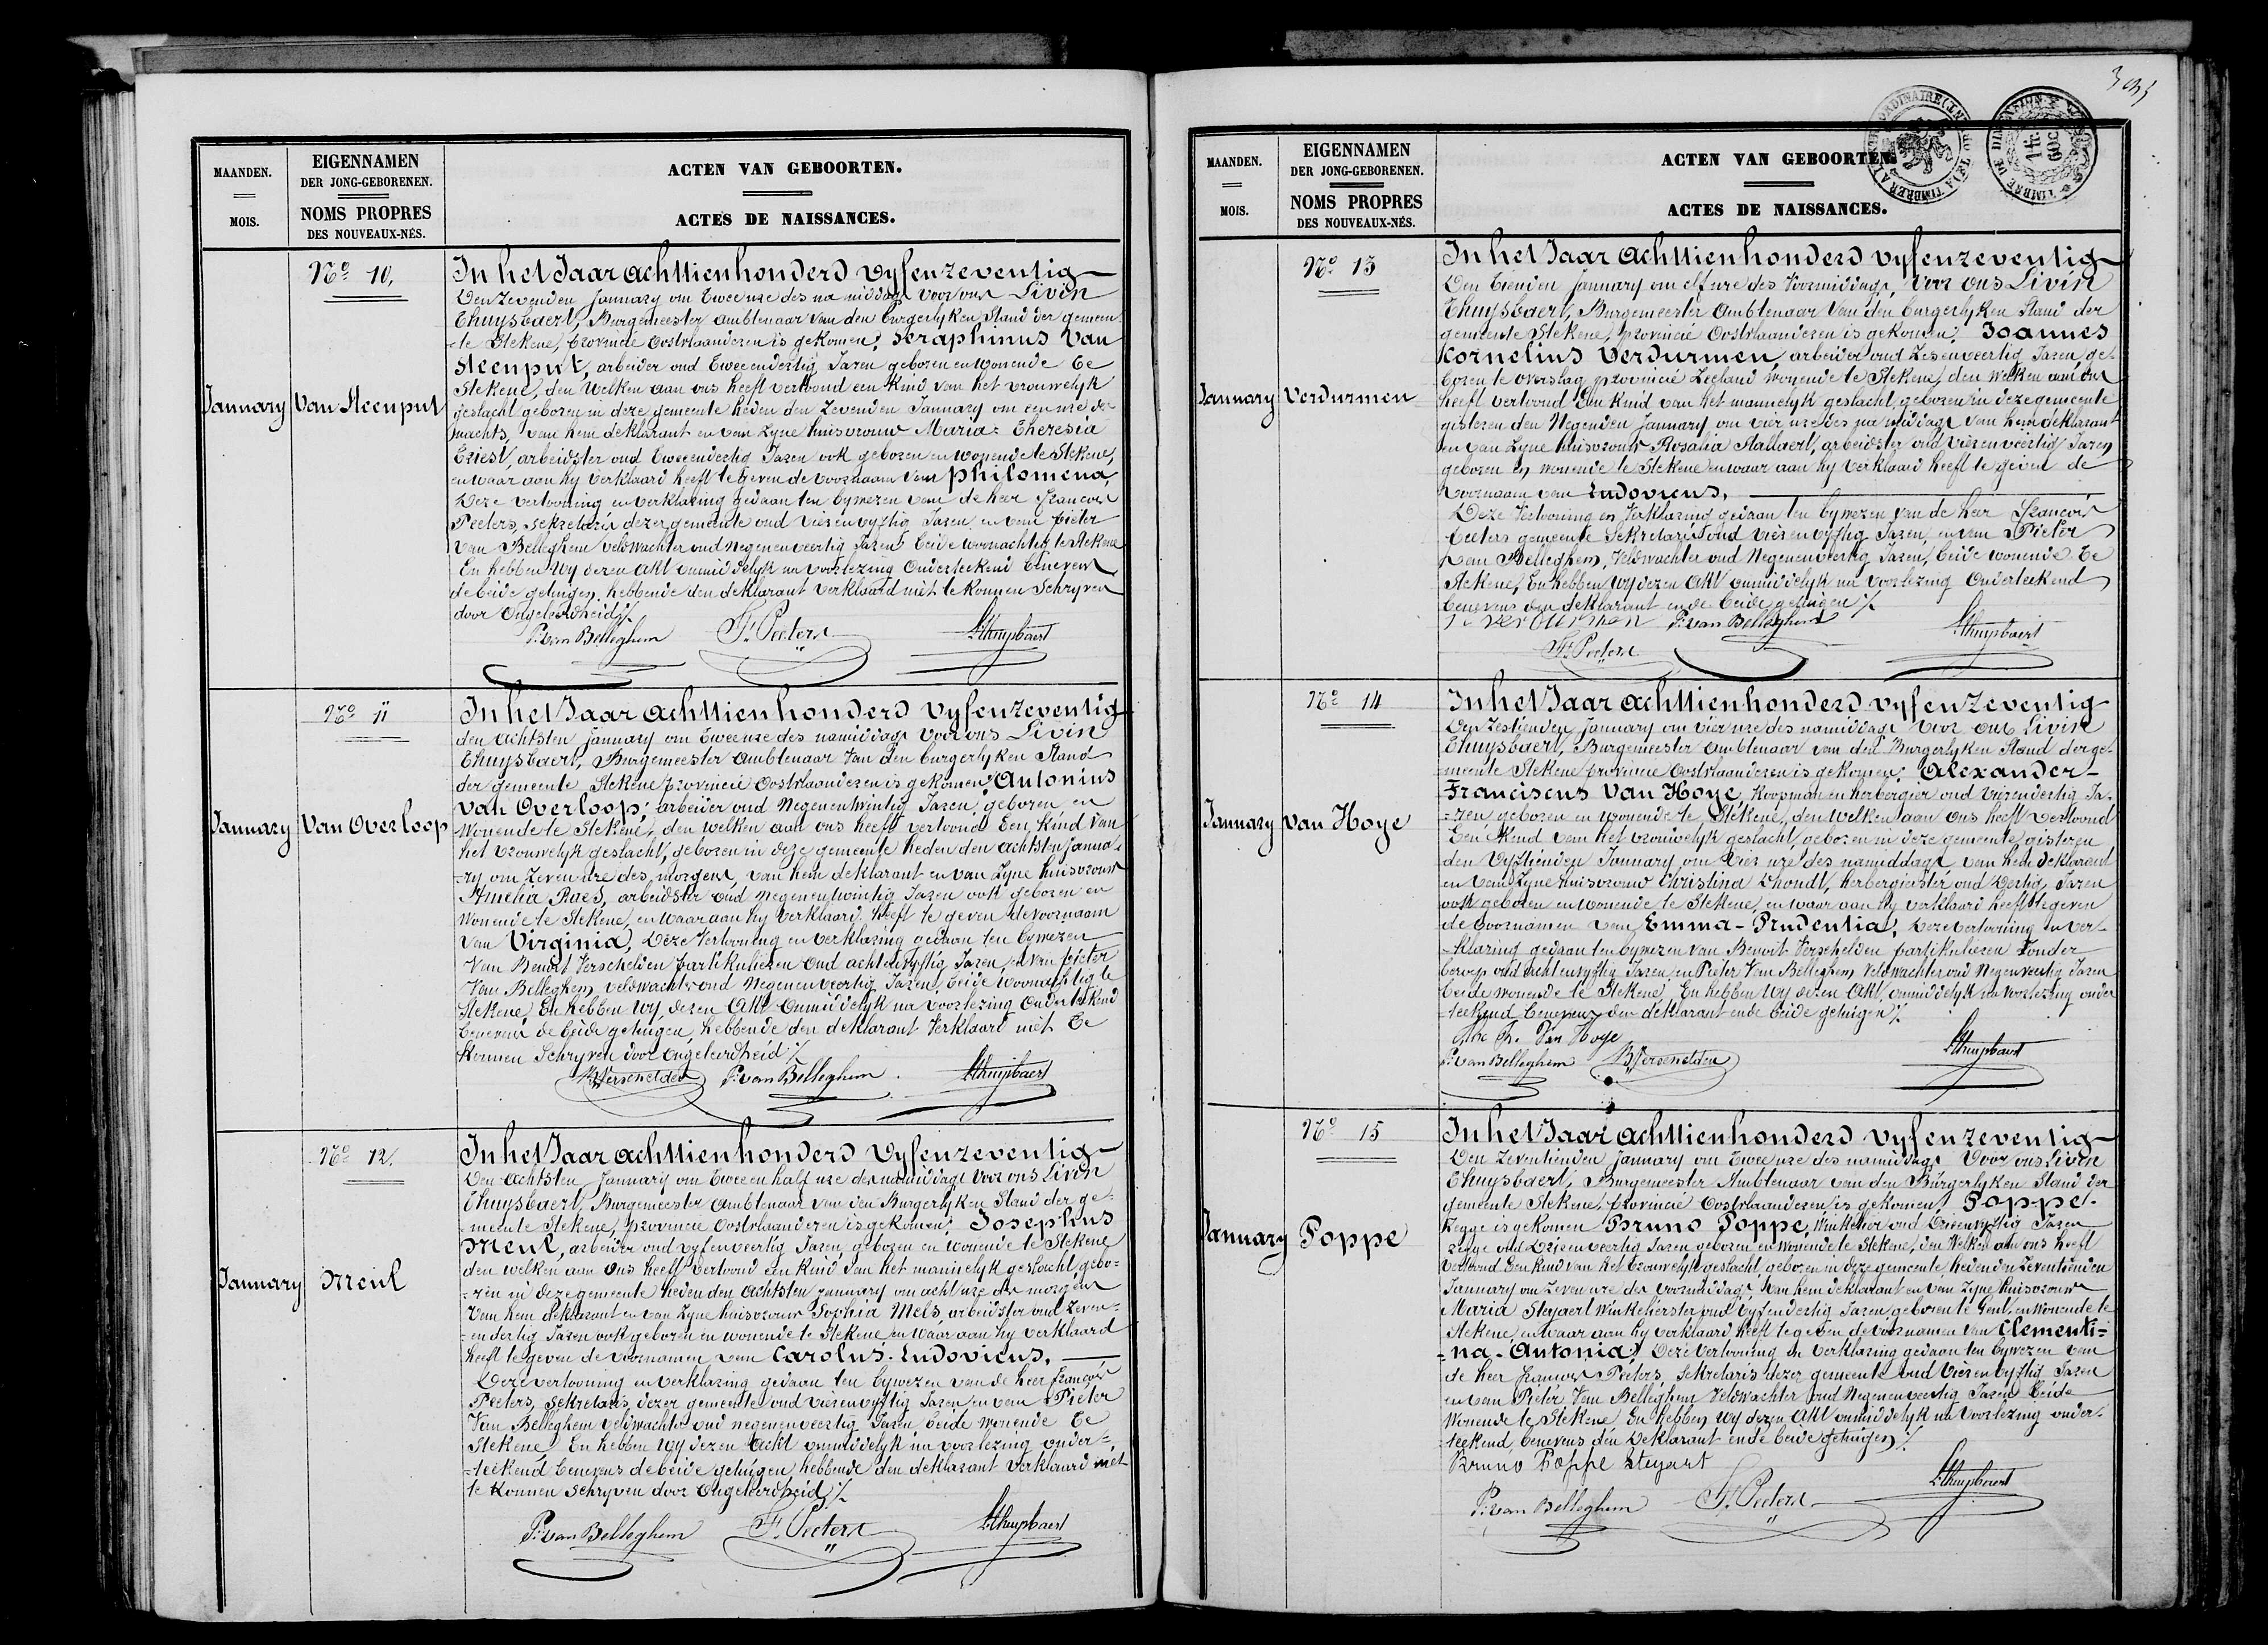 MAANDEN.
MOIS.
EIGENNAMEN
DER JONG-GEBORENEN.
NOMS PROPRES
DES NOUVEAUX-NÉS.
ACTEN VAN GEBOORTEN.
ACTES DE NAISSANCES.
No 10.
January
Van Steenput
In het Jaar achttien honderd vyfenzeventig
Den Zevenden January om Twee ure des na middags Voor ons Livin
Thuysbaert, Burgemeester Ambtenaar van den burgerlyken Stand der gemeen
te Stekene, Provincie Oostvlaanderen is gekomen, Seraphinus Van
Steenput, arbeider oud Tweeendertig Jaren geboren en wonende te
Stekene, den Welken aan ons heeft vertoond een Kind van het vrouwelyk
geslacht geboren in deze gemeente heden den Zevenden January om een ure des
nachts, van hem deklarant en van Zyne huisvrouw Maria-Theresia
Triest, arbeidster oud Tweeendertig Jaren ook geboren en wonende te Stekene,
en waar aan hy Verklaard heeft te geven de voornaam van Philomena,
Deze vertooning en verklaring gedaan ten bywezen van de heer Francois
Peeters, Sekretaris dezer gemeente oud Vierenvyftig Jaren en van Pieter
van Belleghem veldwachter oud Negenenveertig Jaren beide woonachtig te Stekene
En hebben Wy dezen Akt onmiddelyk na voorlezing Onderteekend benevens
de beide getuigen, hebbende den deklarant Verklaard niet te konnen Schryven
door Ongeleerdheid ./.
P. van Belleghem F. Peeters L. Thuysbaert
No 11
January
Van Overloop
In het Jaar achttien honderd vyfenzeventig
den achtsten January om Twee ure des namiddags Voor ons Livin
Thuysbaert, Burgemeester Ambtenaar Van den burgerlyken Stand
der gemeente Stekene provincie Oostvlaanderen is gekomen Antonius
Van Overloop, arbeider oud Negenentwintig Jaren geboren en
Wonende te Stekene, den welken aan ons heeft vertoond Een Kind van
het vrouwelyk geslacht, geboren in deze gemeente heden den achtsten Janua-
-ry om Zeven ure des morgens, van hem deklarant en van Zyne huisvrouw
Amelia Raes, arbeidster oud Negenentwintig Jaren ook geboren en
Wonende te Stekene, en waar aan hy Verklaard heeft te geven de voornaam
van Virginia, Deze Vertooning en verklaring gedaan ten bywezen
Van Benoit Verschelden partikulieren oud achtenvyftig Jaren, en van Pieter
Van Belleghem veldwachter oud Negenenveertig Jaren, beide woonachtig te
Stekene, En hebben Wy dezen Akt Onmiddelyk na Voorlezing Onderteekend
benevens de beide getuigen, hebbende den deklarant Verklaard niet te
Konnen Schryven door Ongeleerdheid ./.
B. Verschelden P. van Belleghem L. Thuysbaert
No 12.
January
Meul
In het Jaar achttien honderd vyfenzeventig
Den Achtsten January om Twee en half ure des namiddags Voor ons Livin
Thuysbaert, Burgemeester Ambtenaar van den Burgerlyken Stand der ge-
-meente Stekene, provincie Oostvlaanderen is gekomen, Josephus
Meul, arbeider oud vyfenveertig Jaren geboren en wonende te Stekene
den welken aan ons heeft vertoond een kind van het mannelyk geslacht gebo-
-ren in deze gemeente heden den Achtsten January om acht ure des morgens
Van hem deklarant en van Zyne huisvrouw Sophia Mels, arbeidster oud Zeven-
-endertig Jaren ook geboren en wonende te Stekene en waar aan hy verklaard
heeft te geven de voornamen van Carolus-Ludovicus.
Deze vertooning en verklaring gedaan ten bywezen van de heer Francois
Peeters, Sekretaris dezer gemeente oud vierenvyftig Jaren en van Pieter
Van Belleghem veldwachter oud negenenveertig Jaren beide wonende te
Stekene, En hebben Wy dezen Ackt onmiddelyk na voorlezing onder-
-teekend benevens de beide getuigen hebbende den deklarant Verklaard niet
te Konnen schryven door Ongeleerdheid ./.
P. van Belleghem F. Peeters L. Thuysbaert
MAANDEN.
MOIS.
EIGENNAMEN
DER JONG-GEBORENEN.
NOMS PROPRES
DES NOUVEAUX-NÉS.
ACTEN VAN GEBOORTEN.
ACTES DE NAISSANCES.
1 fr.
60c
No 13
January
Verdurmen
In het Jaar achttien honderd vyfenzeventig
Den Tienden January om elf ure des Voormiddags, Voor ons Livin
Thuysbaert, Burgemeester Ambtenaar Van den burgerlyken Stand der
gemeente Stekene, provincie Oostvlaanderen is gekomen, Joannes
Kornelius Verdurmen, arbeider oud Zesenveertig Jaren ge-
boren te overslag provincie Zeeland wonende te Stekene, den welken aan ons
heeft vertoond Een Kind van het mannelyk geslacht, geboren in deze gemeente
gisteren den Negenden January om vier ure des na middags van hem deklarant
en van Zyne huisvrouw Rosalia Stallaert, arbeidster oud vierenveertig Jaren
geboren en wonende te Stekene en waar aan hy Verklaard heeft te geven de
Voornaam van Ludovicus.
Deze Vertooning en Verklaring gedaan ten bywezen van de heer Francois
Peeters gemeente Sekretaris oud vierenvyftig Jaren, en van Pieter
van Belleghem, Veldwachter oud Negenenveertig Jaren, beide wonende te
Stekene, En hebben Wy dezen Akt onmiddelyk na voorlezing Onderteekend
benevens den deklarant en de beide getuigen ./.
Verdurmen P. van Belleghem L. Thuysbaert
F. Peeters
No 14
January
Van Hoye
In het Jaar achttien honderd vyfenzeventig
Den Zestienden January om vier ure des namiddags Voor ons Livin
Thuysbaert, Burgemeester Ambtenaar van den Burgerlyken Stand der ge-
-meente Stekene provincie Oostvlaanderen is gekomen, Alexander-
Franciscus Van Hoye, Koopman en herbergier oud Vierendertig Ja-
-ren geboren en wonende te Stekene, den Welken aan Ons heeft vertoond
Een Kind van het vrouwelyk geslacht, geboren in deze gemeente gisteren
den Vyftienden January om vier ure des namiddags van hem deklarant
en van Zyne huisvrouw Christina Dhondt, herbergierster oud Dertig Jaren
ook geboren en wonende te Stekene, en waar aan hy verklaard heeft te geven
de Voornamen van Emma-Prudentia, Deze vertooning en ver-
-klaring gedaan ten bywezen van Benoit Verschelden partikulieren Zonder
beroep oud achtenvyftig Jaren en Pieter Van Belleghem veldwachter oud Negenveertig Jaren
beide wonende te Stekene, En hebben Wy dezen Akt, onmiddelyk na Voorlezing onder
-teekend benevens den deklarant en de beide getuigen ./.
Van Hoye
P. van Belleghem B. Verschelden L. Thuysbaert
No 15
January
Poppe
In het Jaar achttien honderd vyfenzeventig
Den Zeventienden January om Twee ure des namiddags Voor ons Livin
Thuysbaert, Burgemeester Ambtenaar van den Burgerlyken Stand der
gemeente Stekene, provincie Oostvlaanderen, is gekomen, Poppe.
Zegge is gekomen Bruno Poppe, Winkelier oud Drieenvyftig Jaren
zegge oud Drieenveertig Jaren geboren en Wonende te Stekene, den Welken aan ons heeft
vertoond Een Kind van het vrouwelyk geslacht, geboren in deze gemeente heden den Zeventienden
January om Zeven ure des voormiddags, van hem deklarant en van Zyne huisvrouw
Maria Steyaert Winkelierster oud vyfendertig Jaren geboren te Gent, en Wonende te
Stekene, en waar aan hy verklaard heeft te geven de voornamen van Clementi-
-na-Antonia, Deze vertooning en Verklaring gedaan ten bywezen van
de heer Francois Peeters, Sekretaris dezer gemeente oud vierenvyftig Jaren
en van Pieter Van Belleghem Veldwachter oud Negenenveertig Jaren beide
Wonende te Stekene En hebben Wy dezen Akt onmiddelyk na Voorlezing onder-
-teekend, benevens den Deklarant en de beide getuigen ./.
Bruno Poppe Steyart
P. van Belleghem F. Peeters L. Thuysbaert